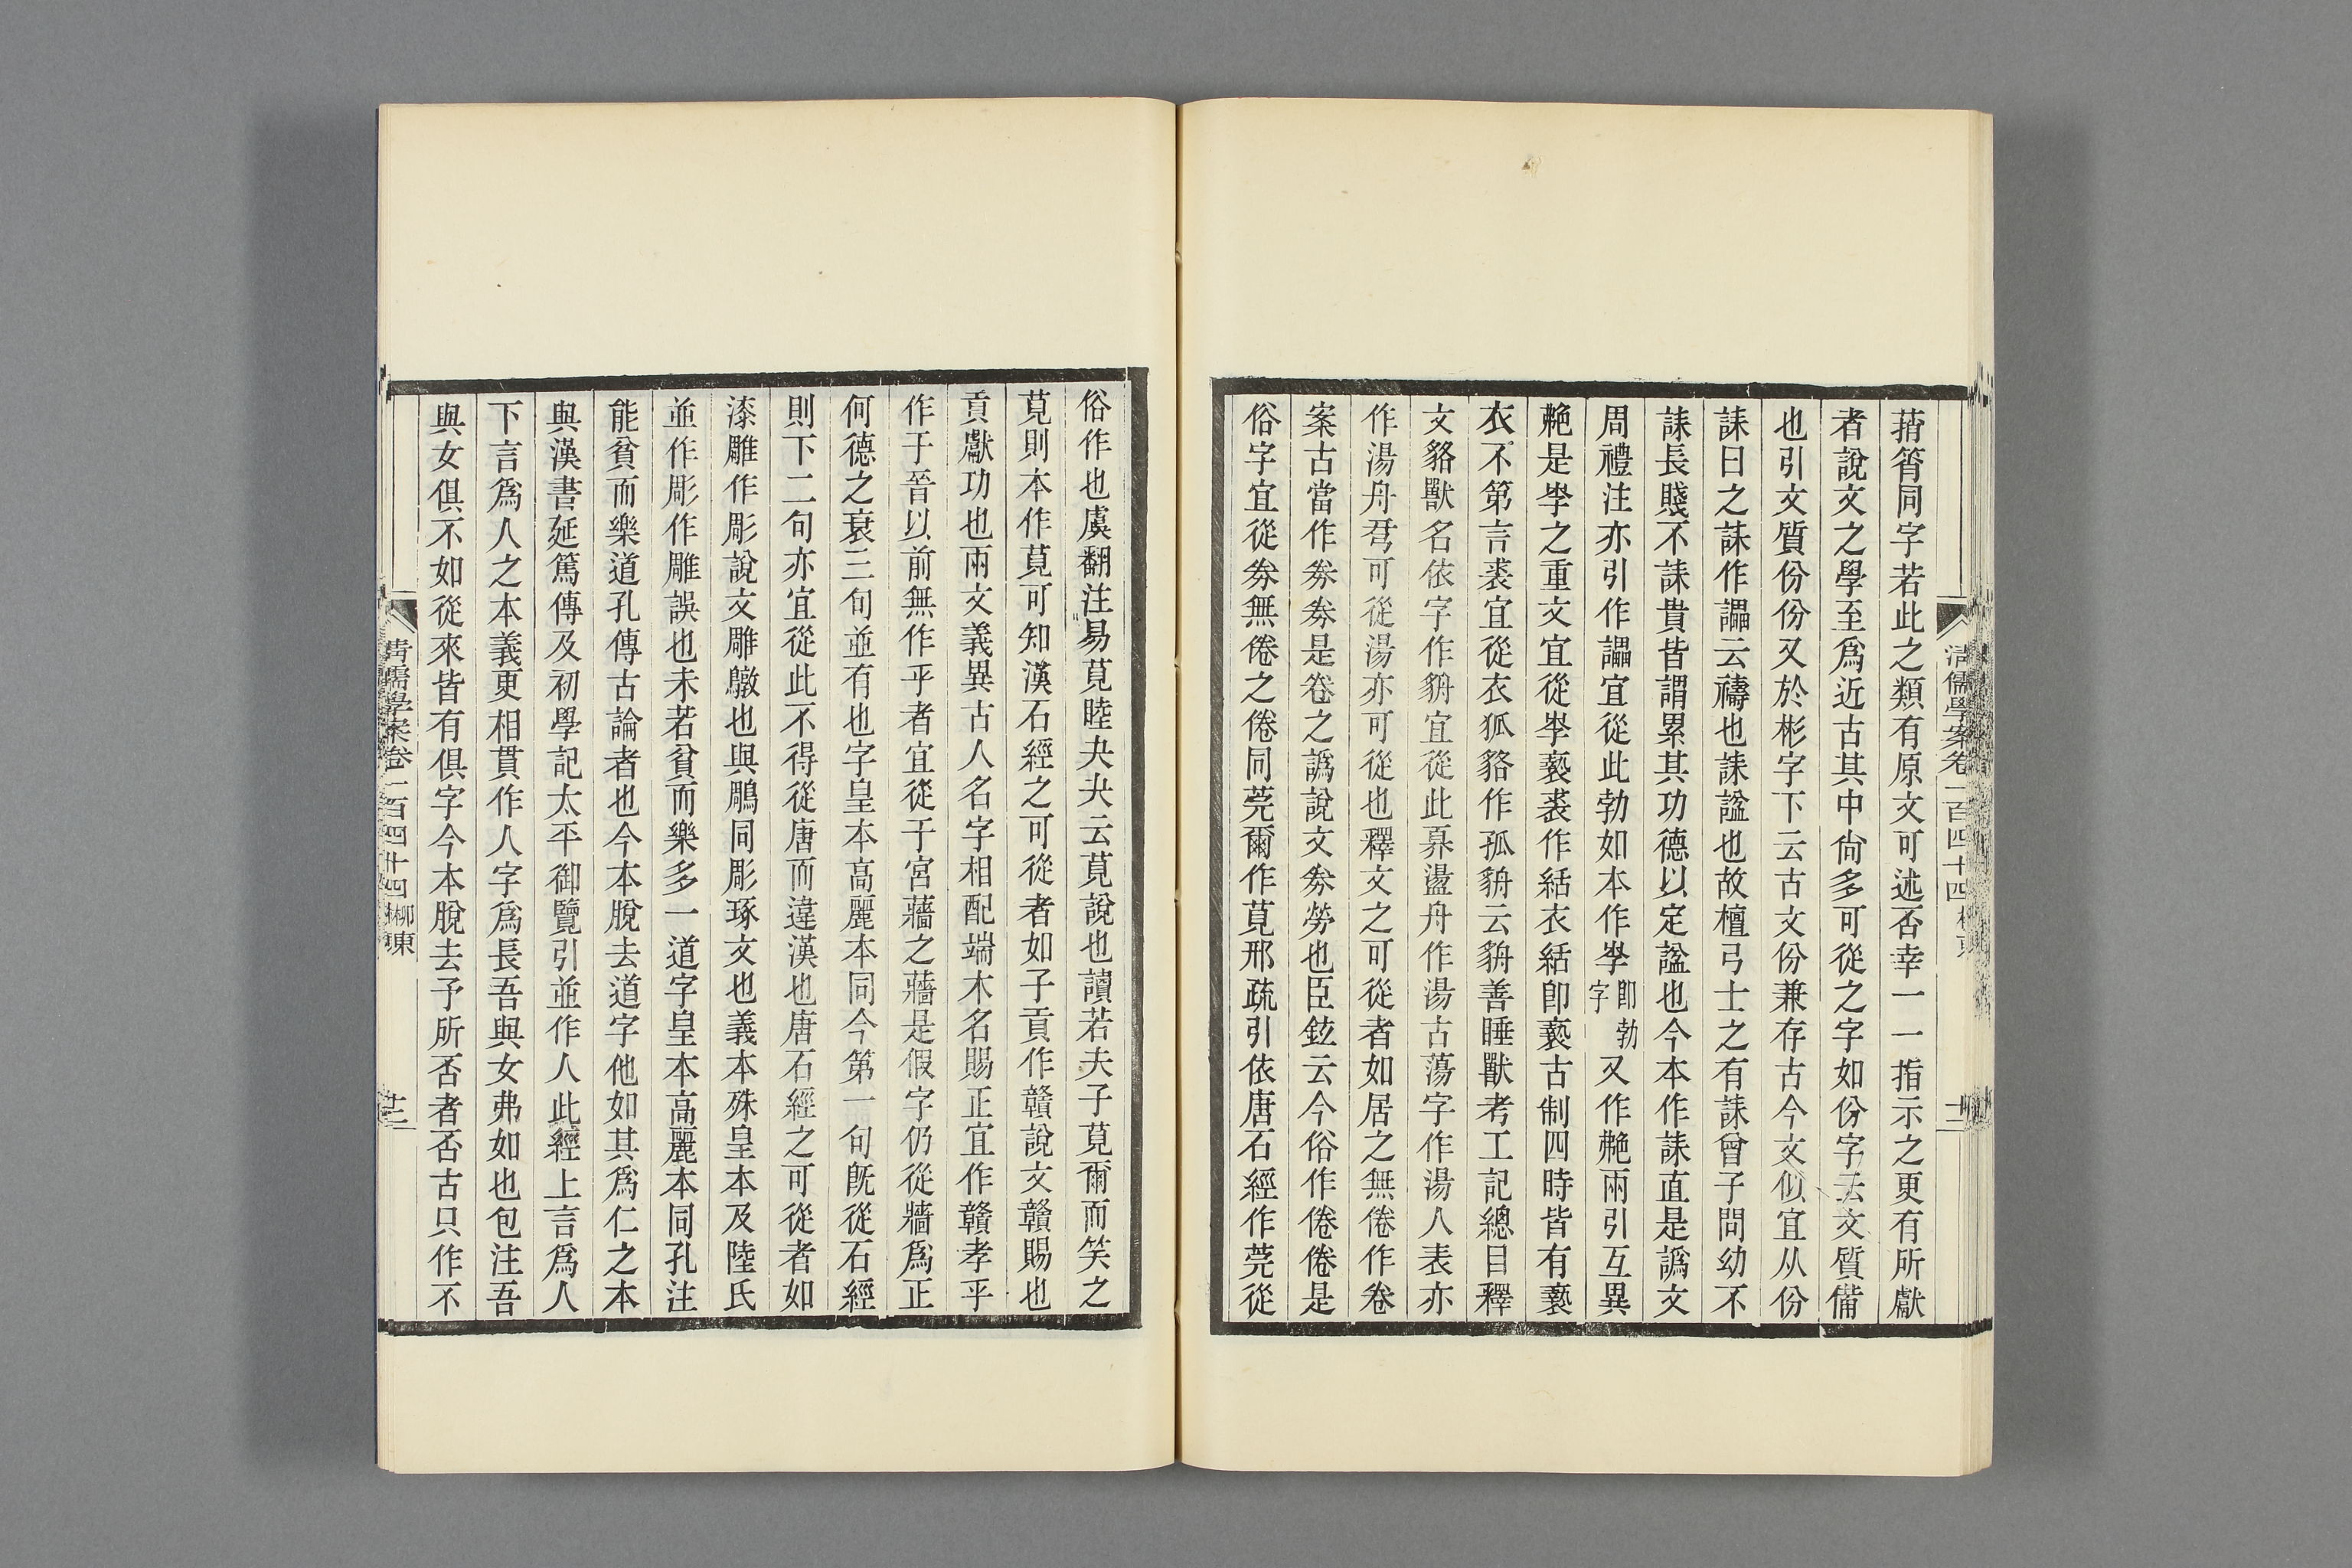 清儒學案卷一百四十四
䈰筲同字若此之類有原文可述否幸一一指示之更有所獻
者說文之學至爲近古其中尙多可從之字如份字云文質備
也引文質份份又於彬字下云古文份兼存古今文似宜从份
誄曰之誄作讄云禱也誄諡也故檀弓士之有誄曾子問幼不
誄長賤不誄貴皆謂累其功德以定諡也今本作誄直是譌文
周禮注亦引作讄宜從此勃如本作孛卽勃字又作艴兩引互異
艴是孛之重文宜從孛褻裘作結衣結卽褻古制四時皆有褻
衣不第言裘宜從衣狐貉作孤貈云貈善睡獸考工記總目釋
文貉獸名依字作貈宜從此奡盪舟作湯古蕩字作湯人表亦
作湯舟羿可從湯亦可從也釋文之可從者如居之無倦作卷
案古當作券券是卷之譌說文券勞也臣鉉云今俗作倦倦是
俗字宜從券無倦之倦同莞爾作莧邢疏引依唐石經作莞從
俗作也虞翻注易莧睦夬夬云莧說也讀若夫子莧爾而笑之
莧則本作莧可知漢石經之可從者如子貢作贛說文贛賜也
貢獻功也兩文義異古人名字相配端木名賜正宜作贛孝乎
作于晉以前無作乎者宜從于宮牆之蘠是假字仍從牆爲正
何德之衰三句並有也字皇本高麗本同今第一句旣從石經
則下二句亦宜從此不得從唐而違漢也唐石經之可從者如
漆雕作彫說文雕鷻也與鵰同彫琢文也義本殊皇本及陸氏
並作彫作雕誤也未若貧而樂多一道字皇本高麗本同孔注
能貧而樂道孔傳古論者也今本脫去道字他如其爲仁之本
與漢書延篤傳及初學記太平御覽引並作人此經上言爲人
下言爲人之本義更相貫作人字爲長吾與女弗如也包注吾
與女俱不如從來皆有俱字今本脫去予所否者否古只作不
清儒學案卷一百四十四 柳東